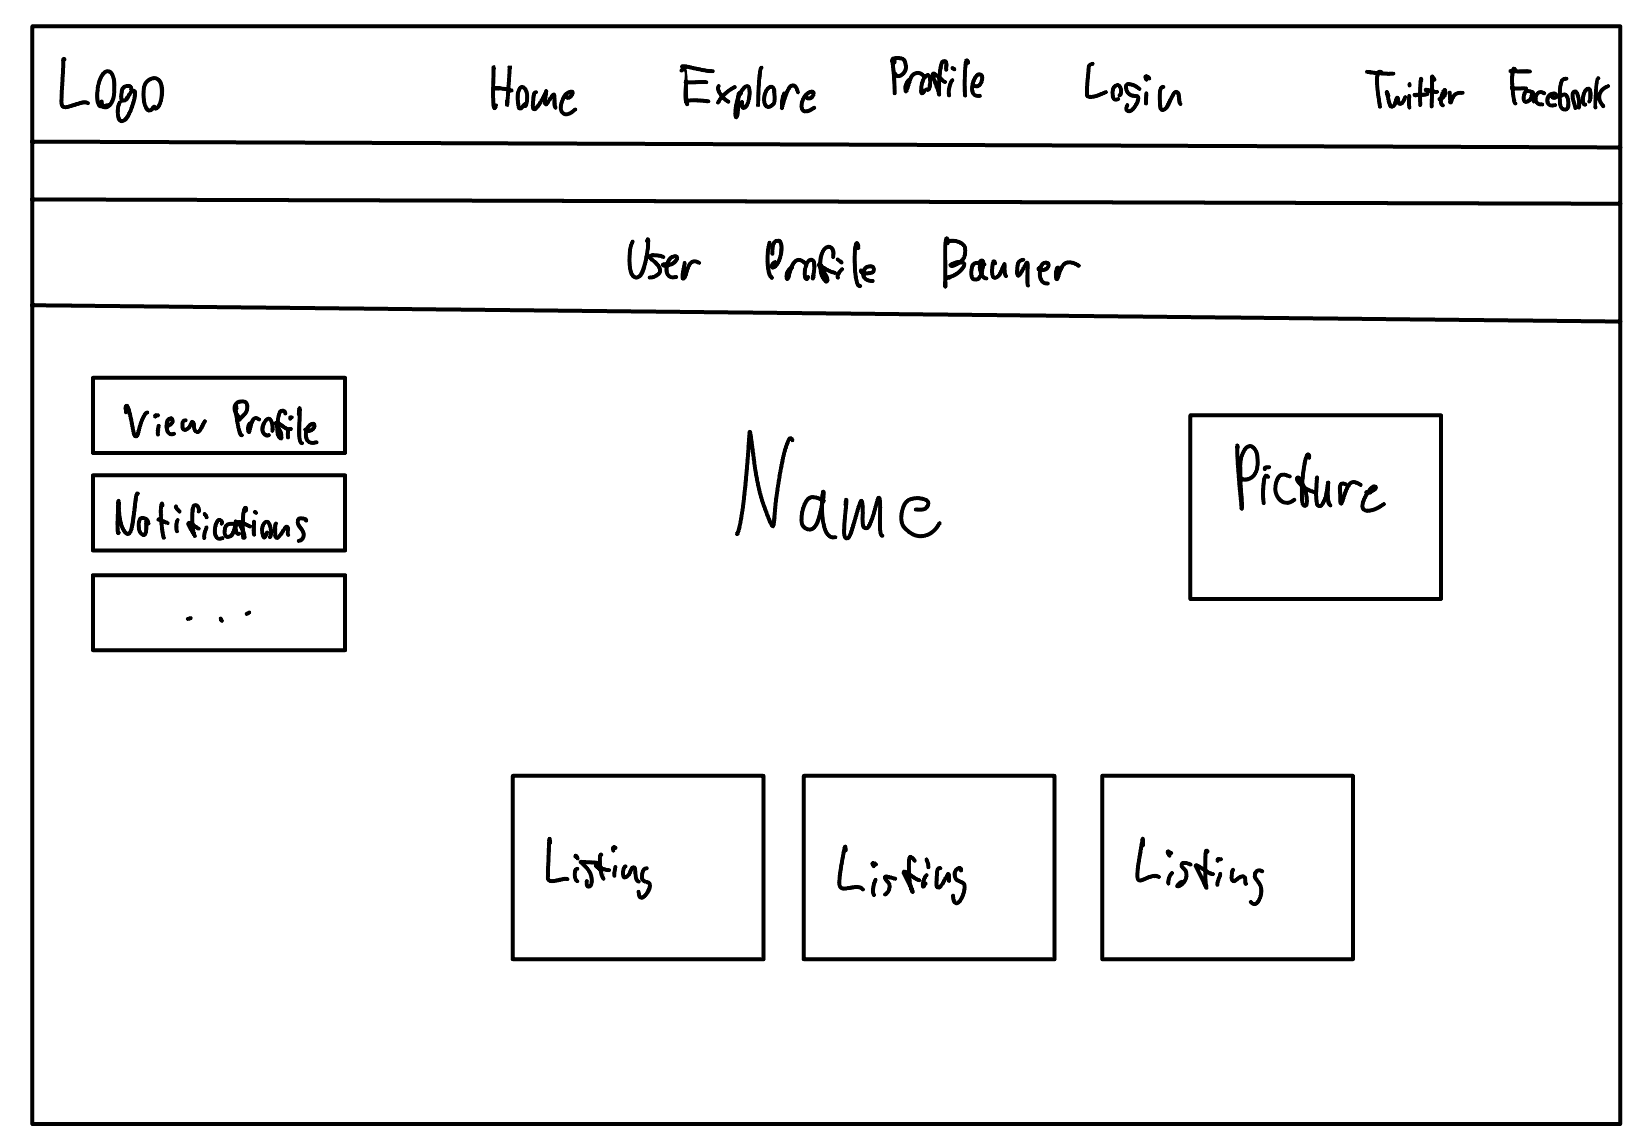 Logo Home Explore Profile Login Twitter Facebook
User Profile Banner
View Profile
Notifications
...
Name
Picture
Listing Listing Listing